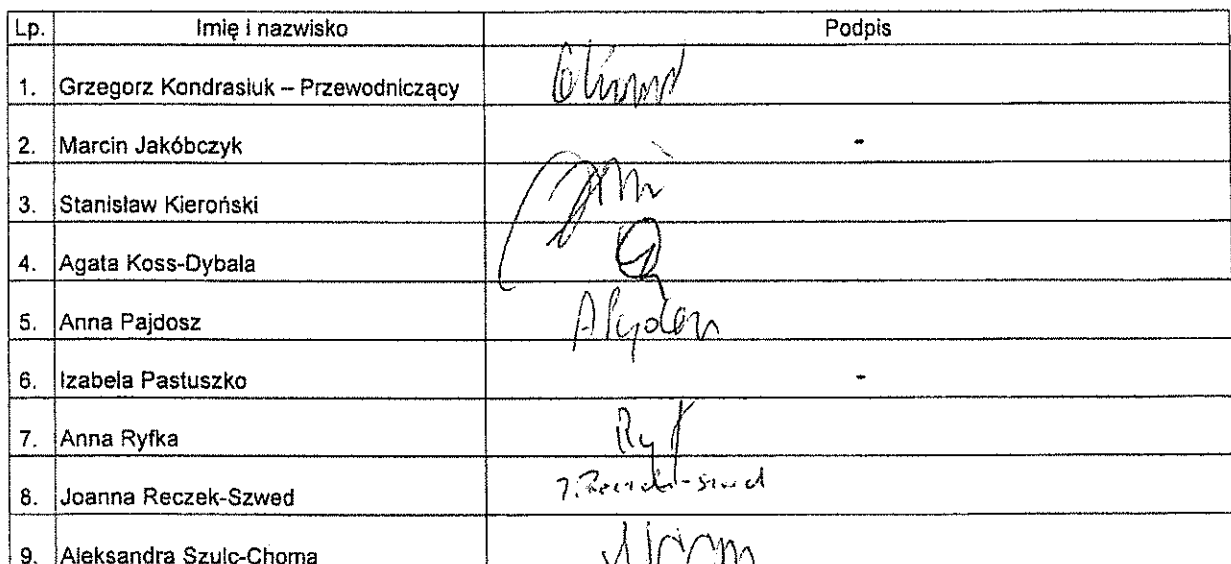 Lp. Imię i nazwisko Podpis
1. Grzegorz Kondrasiuk – Przewodniczący
2. Marcin Jakóbczyk -
3. Stanisław Kieroński
4. Agata Koss-Dybala
5. Anna Pajdosz
6. Izabela Pastuszko -
7. Anna Ryfka
8. Joanna Reczek-Szwed
9. Aleksandra Szulc-Choma